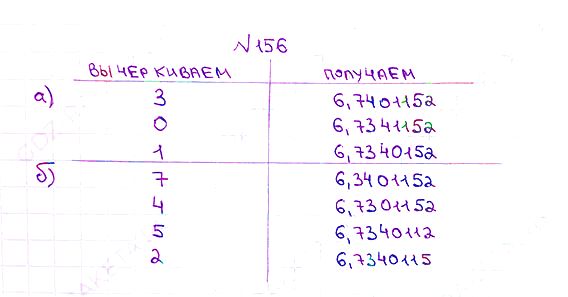 №156
ВЫЧЕРКИВАЕМ ПОЛУЧАЕМ
а) 3 6,7401152
0 6,7341152
1 6,7340152
б) 7 6,3401152
4 6,7301152
5 6,7340112
2 6,7340115